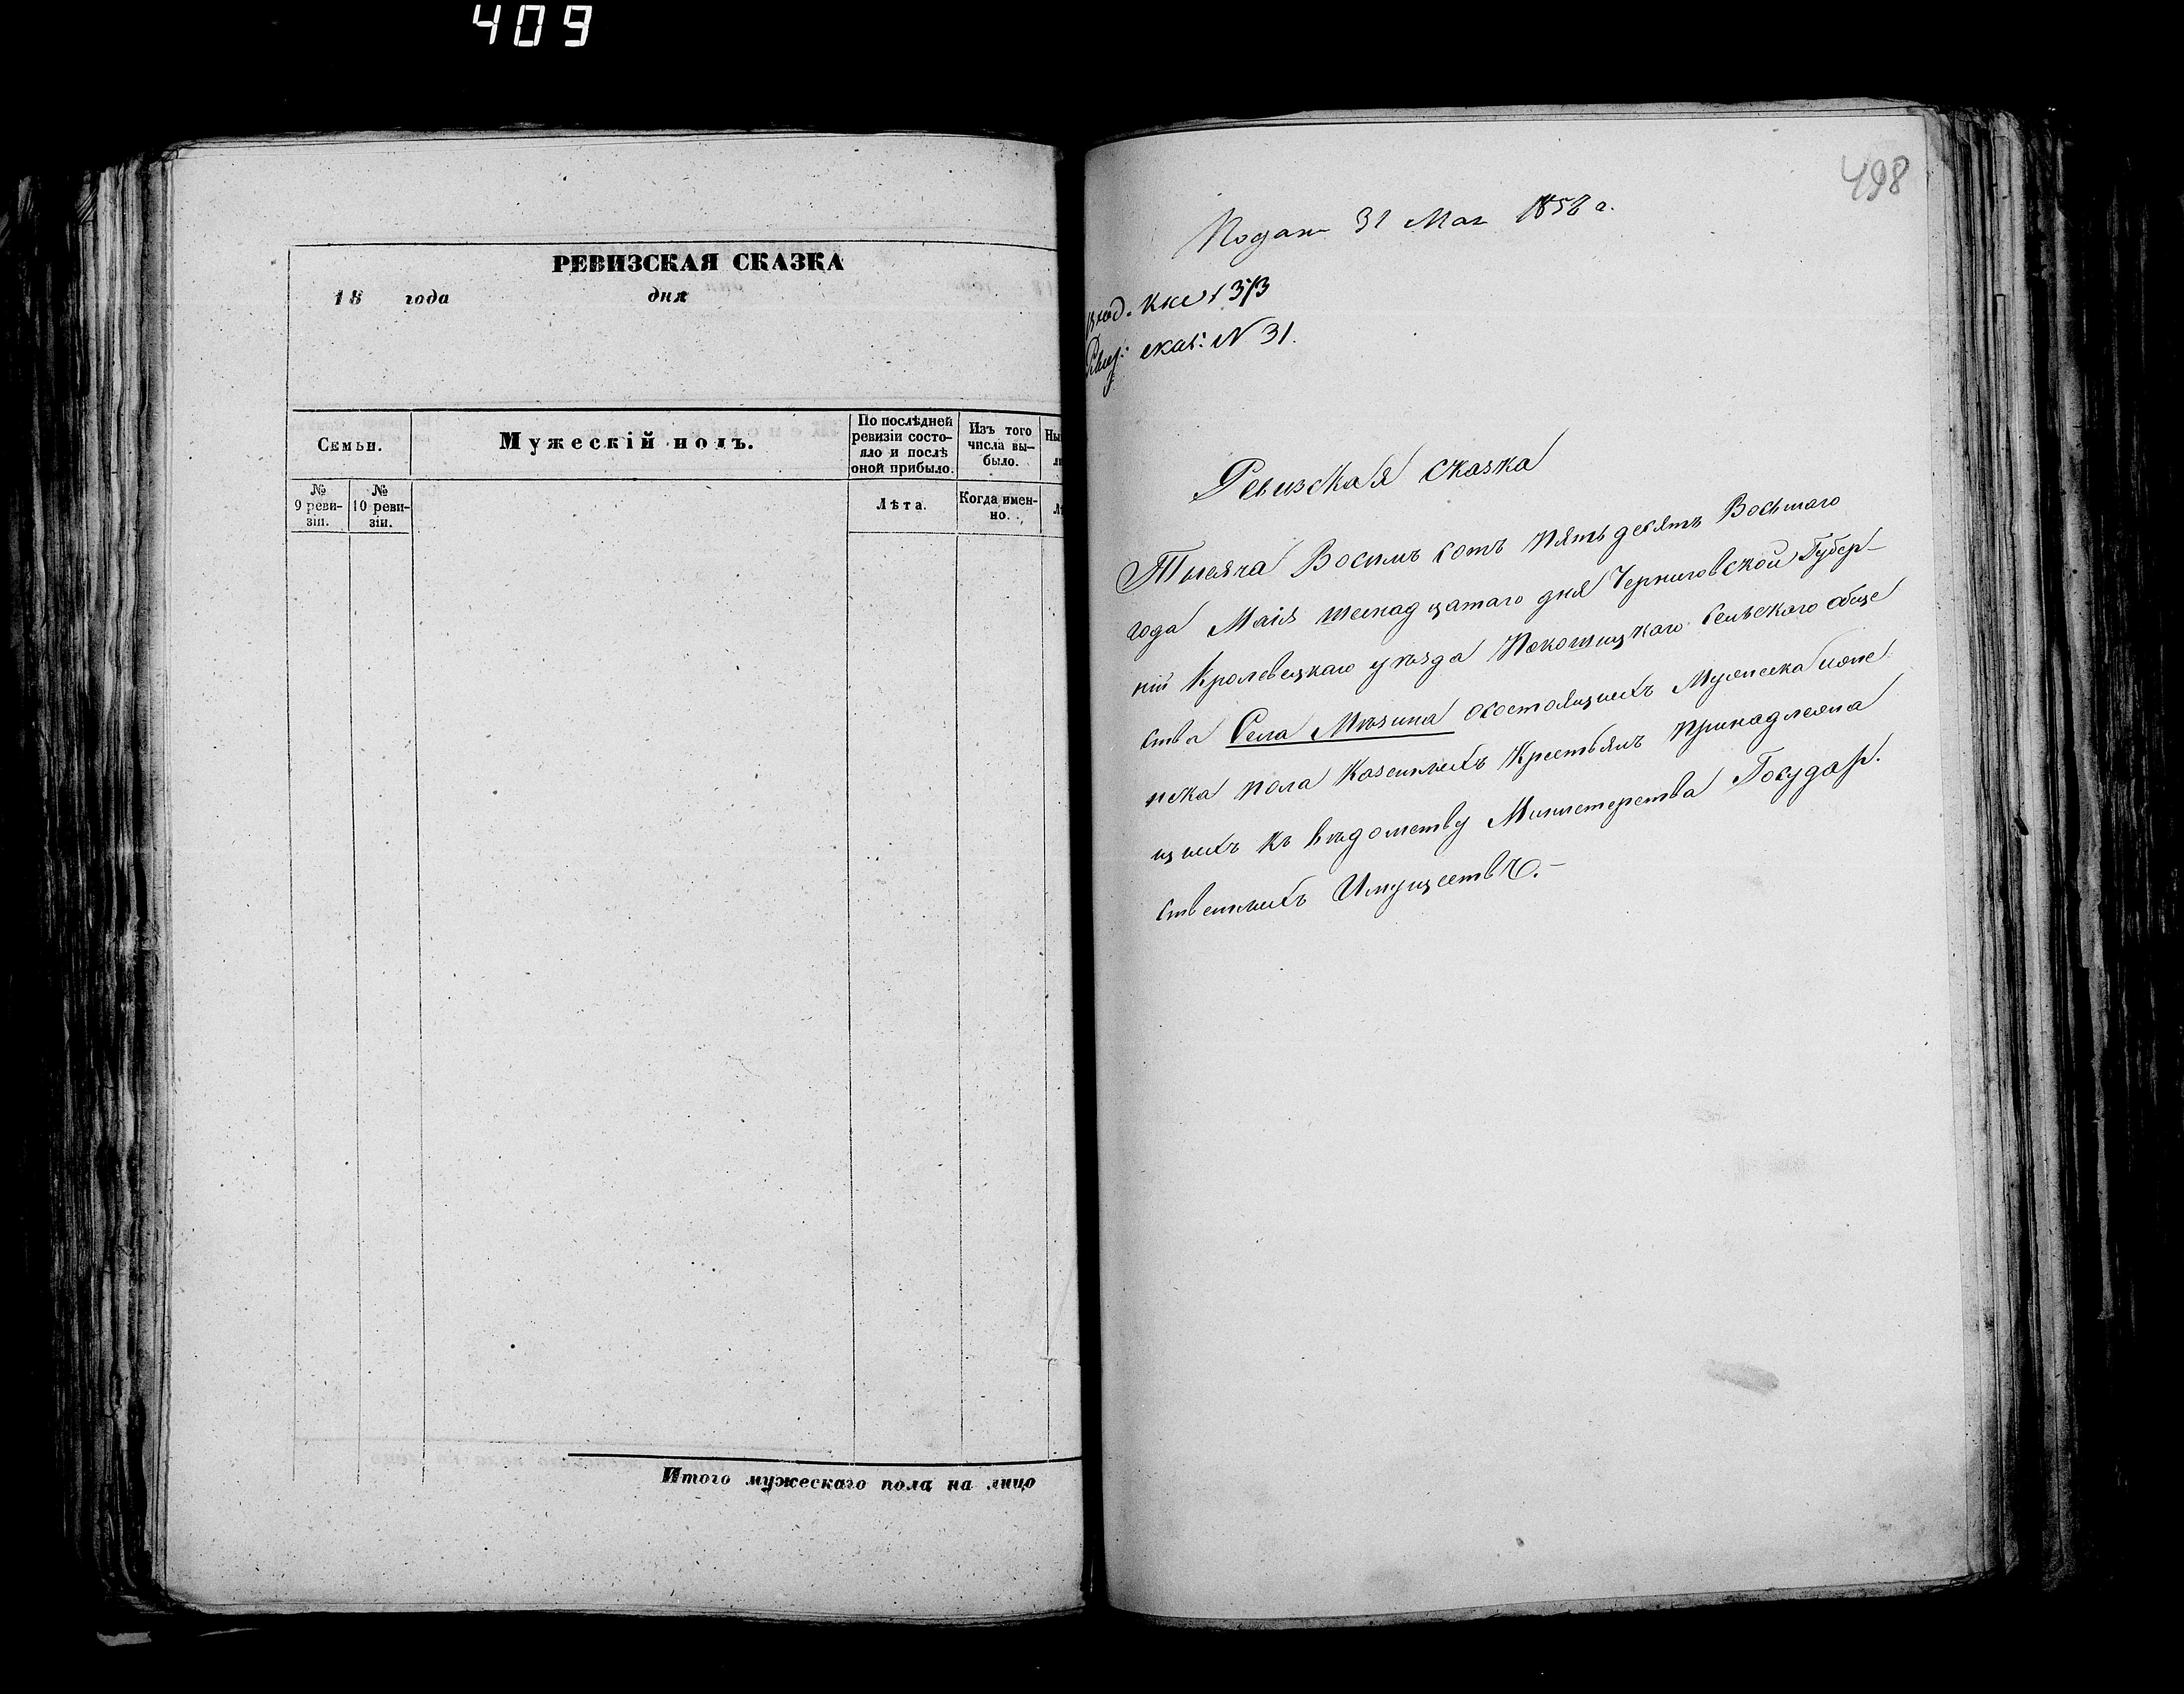 409
РЕВИЗСКАЯ СКАЗКА
18 года дня
Семьи.
Мужескій полъ.
По послѣдней ревизіи состо-
яло и послѣ оной прибыло.
Изъ того числа вы-
было.
№ 9 реви-
зіи.
№ 10 реви-
зіи.
Лѣта.
Когда имен-
но.
Итого мужескаго пола на лицо
498
Подана 31 Мая 1858 г.
вход. 1373
Ревиз: сказ: N 31.
Ревизская сказка
Тысяча Восемъ сотъ Пятьдесятъ Восьмаго
года Маія шеснадцатаго дня Черниговской Губер-
ніи Кролевецкаго уѣзда Покошицкаго Сельского обще
ства Села Мѣзина осостоящихъ Мужеска иже
нска пола Казенныхъ Крестьянъ Принадлежа
щихъ Къ вѣдомству Министерства Государ.
ственныхъ Имуществъ.-